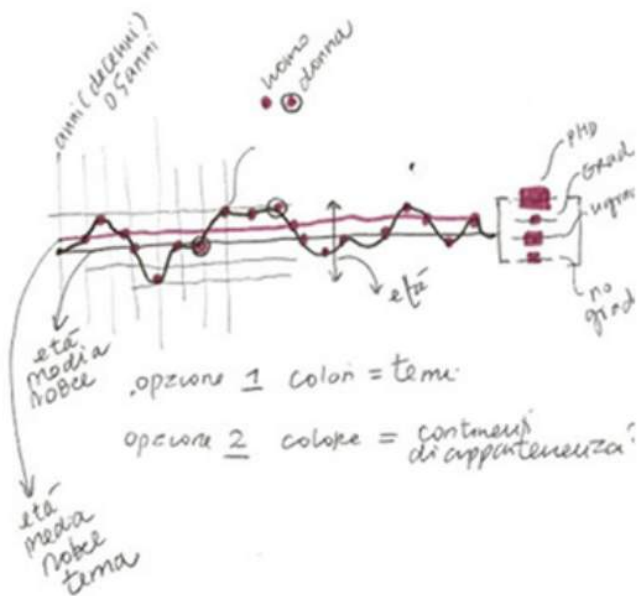 anni (decenni)
o 5 anni
uomo
donna
PHD
Grad
ugrad
no
grad
età
età
media
nobel
.opzione 1 colori = temi
opzione 2 colore = continenti
di appartenenza?
età
media
nobel
tema